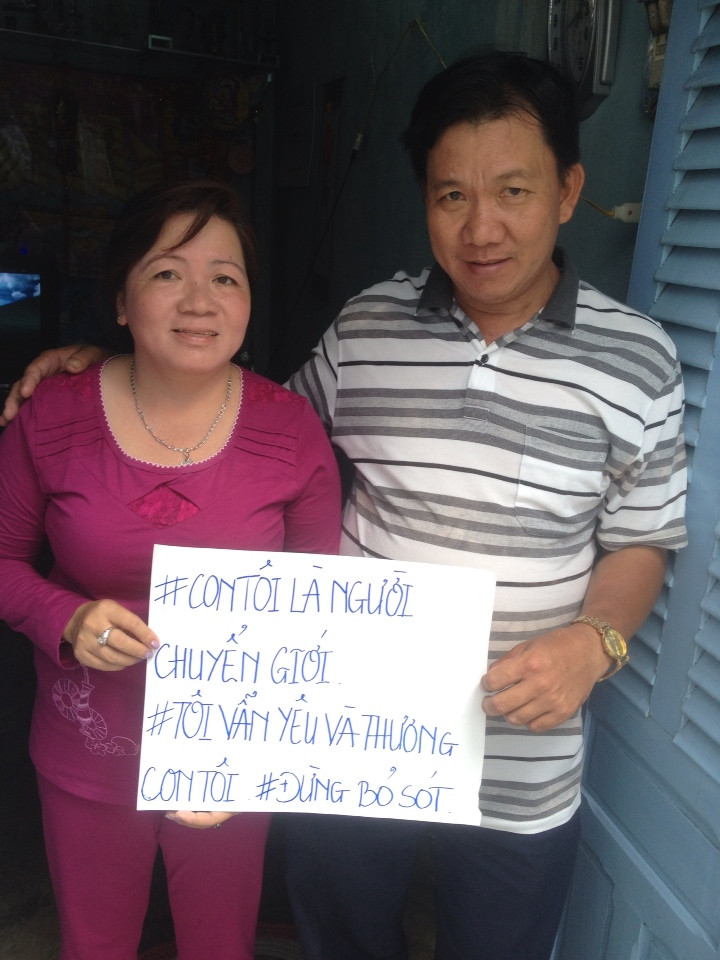 #CON TÔI LÀ NGƯỜI
CHUYỂN GIỚI.
#TÔI VẪN YÊU VÀ THƯƠNG
CON TÔI. #ĐỪNG BỎ SÓT.